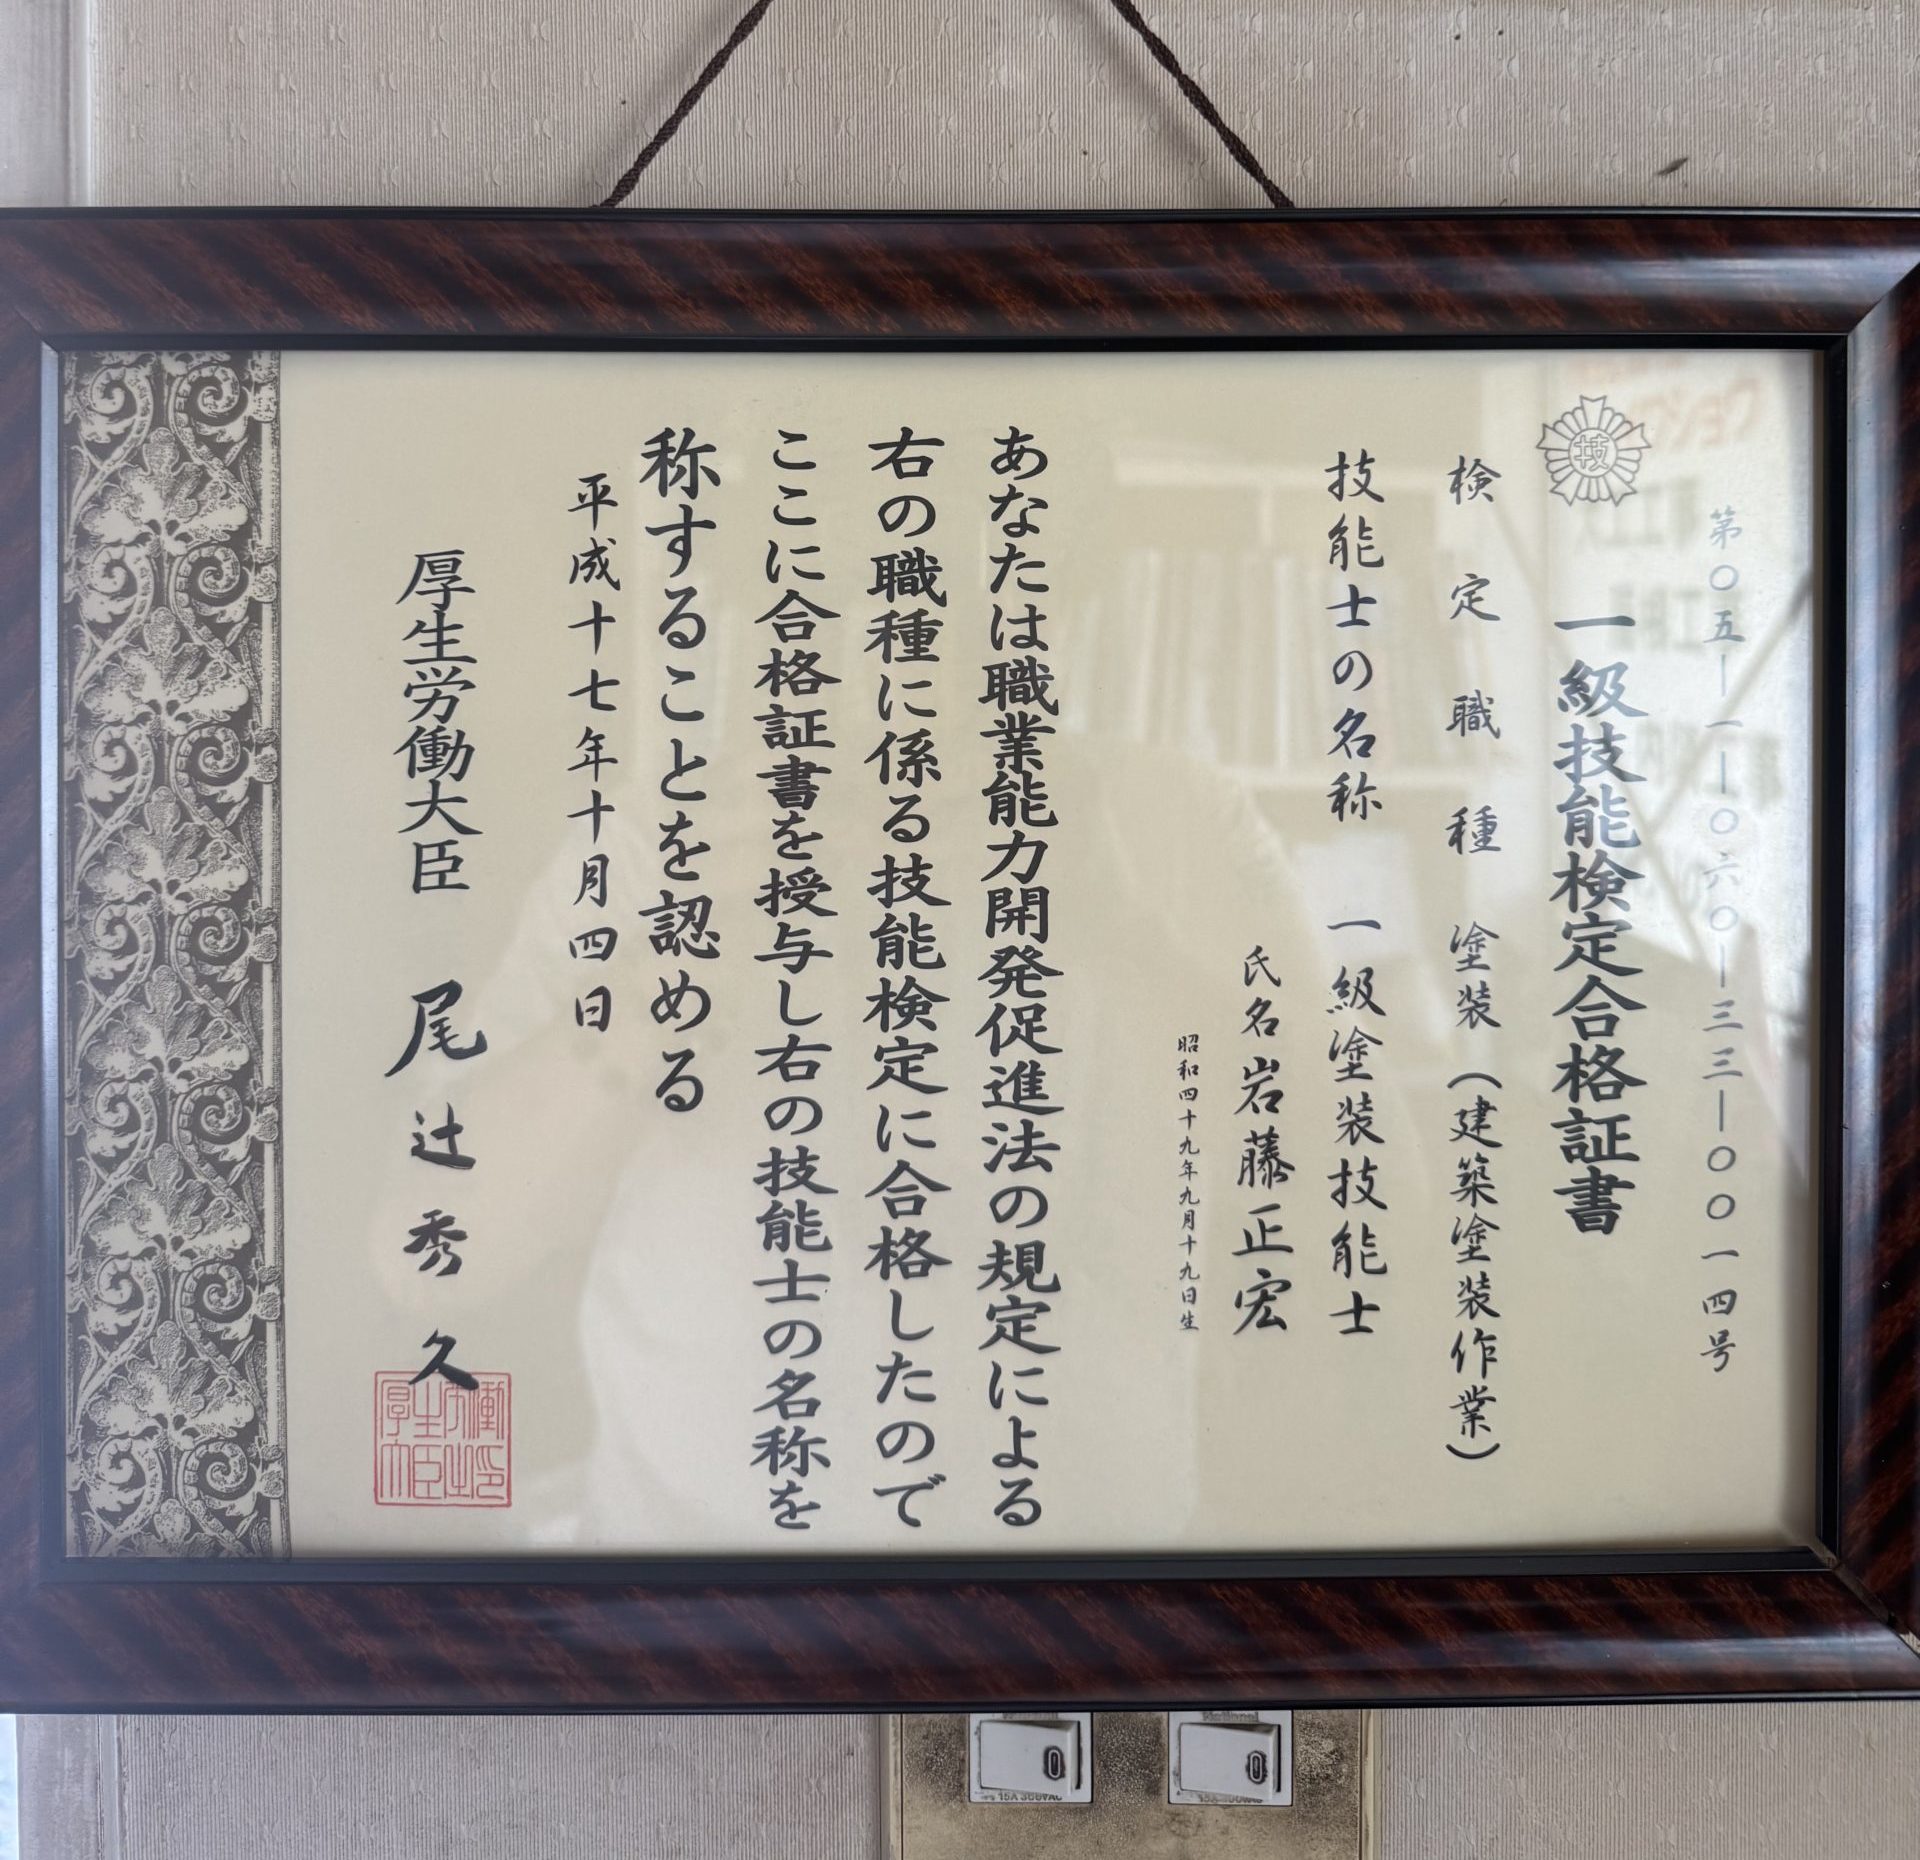 第〇五―一―〇六〇―三三―〇〇一四号
技
一級技能検定合格証書
検定職種 塗装（建築塗装作業）
技能士の名称 一級塗装技能士
氏名 岩藤正宏
昭和四十九年九月十九日生
あなたは職業能力開発促進法の規定による
右の職種に係る技能検定に合格したので
ここに合格証書を授与し右の技能士の名称を
称することを認める
平成十七年十月四日
厚生労働大臣 尾辻秀久